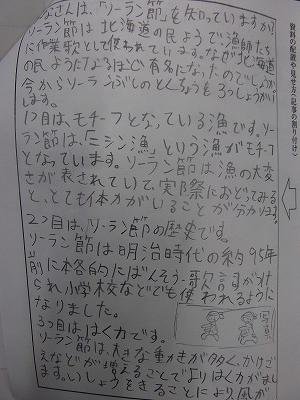 みなさんは、「ソーラン節」を知っていますか?
ソーラン節は北海道の民ようで、漁師たち
に作業歌として使われています。なぜ北海道
の民ようになるほどに有名になったのでしょうか
今からソーランぶしのとくちょうを3つしょうかい
します。
1つ目は、モチーフとなっている漁です。ソー
ラン節は、「ニシン漁」という漁がモチーフ
となっています。ソーラン節は、漁の大変
さが表されていて、実際におどってみる
と、とても体力がいることが分かります。
2つ目は、ソーラン節の歴史です。
ソーラン節は明治時代の約95年
前に本各的にばんそう・歌詞がつけ
られ、小学校などでも使われるように
なりました。
3つ目ははく力です。
写真
ソーラン節は、大きな動きが多く、かけご
えなどが増えることでよりはく力がまし
ます。いしょうをきることにより風が
資料の配置や見せ方(記事の割り付け)